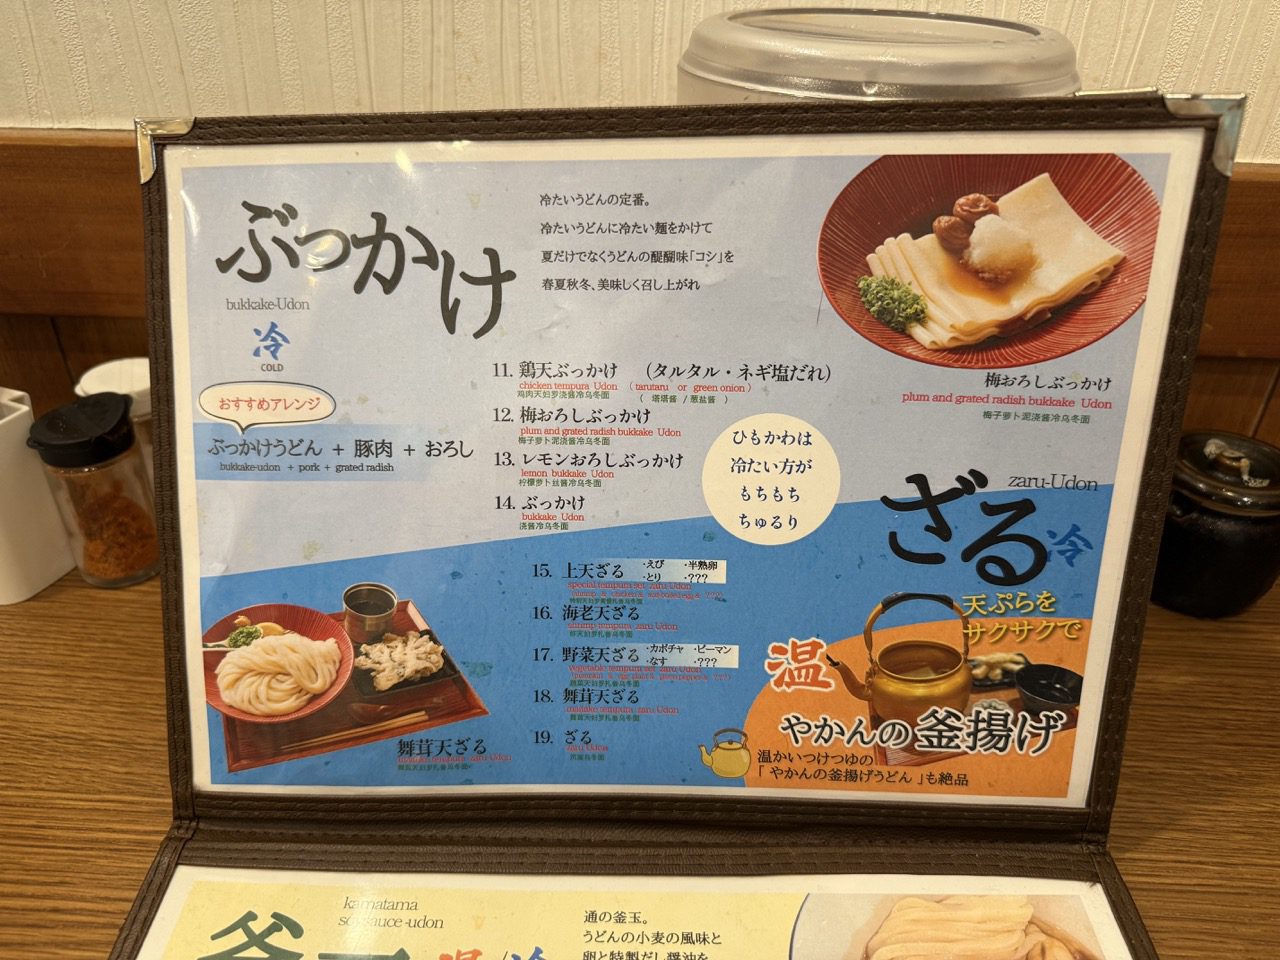 ぶっかけ
bukkake-Udon
冷
COLD
冷たいうどんの定番。
冷たいうどんに冷たい麺をかけて
夏だけでなくうどんの醍醐味「コシ」を
春夏秋冬、美味しく召し上がれ
おすすめアレンジ
ぶっかけうどん + 豚肉 + おろし
bukkake-udon + pork + grated radish
11. 鶏天ぶっかけ （タルタル・ネギ塩だれ）
chicken tempura Udon （tarutaru or green onion）
鸡肉天妇罗浇酱冷乌冬面 （塔塔酱 / 葱盐酱）
12. 梅おろしぶっかけ
plum and grated radish bukkake Udon
梅子萝卜泥浇酱冷乌冬面
13. レモンおろしぶっかけ
lemon bukkake Udon
柠檬萝卜丝酱冷乌冬面
14. ぶっかけ
bukkake Udon
浇酱冷乌冬面
梅おろしぶっかけ
plum and grated radish bukkake Udon
梅子萝卜泥浇酱冷乌冬面
ひもかわは
冷たい方が
もちもち
ちゅるり
zaru-Udon
ざる
冷
15. 上天ざる ・えび ・半熟卵
・とり ・???
special tempura set zaru Udon
16. 海老天ざる
shrimp tempura zaru Udon
虾天妇罗扎鲁乌冬面
17. 野菜天ざる ・カボチャ ・ピーマン
・なす ・???
vegetable tempura set zaru Udon
蔬菜天妇罗扎鲁乌冬面
18. 舞茸天ざる
maitake tempura zaru Udon
舞茸天妇罗扎鲁乌冬面
19. ざる
zaru Udon
舞茸天ざる
maitake tempura zaru Udon
舞茸天妇罗扎鲁乌冬面
天ぷらを
サクサクで
温
やかんの釜揚げ
温かいつけつゆの
「やかんの釜揚げうどん」も絶品
kamatama
soysauce-udon
通の釜玉。
うどんの小麦の風味と
卵と特製だし醤油を